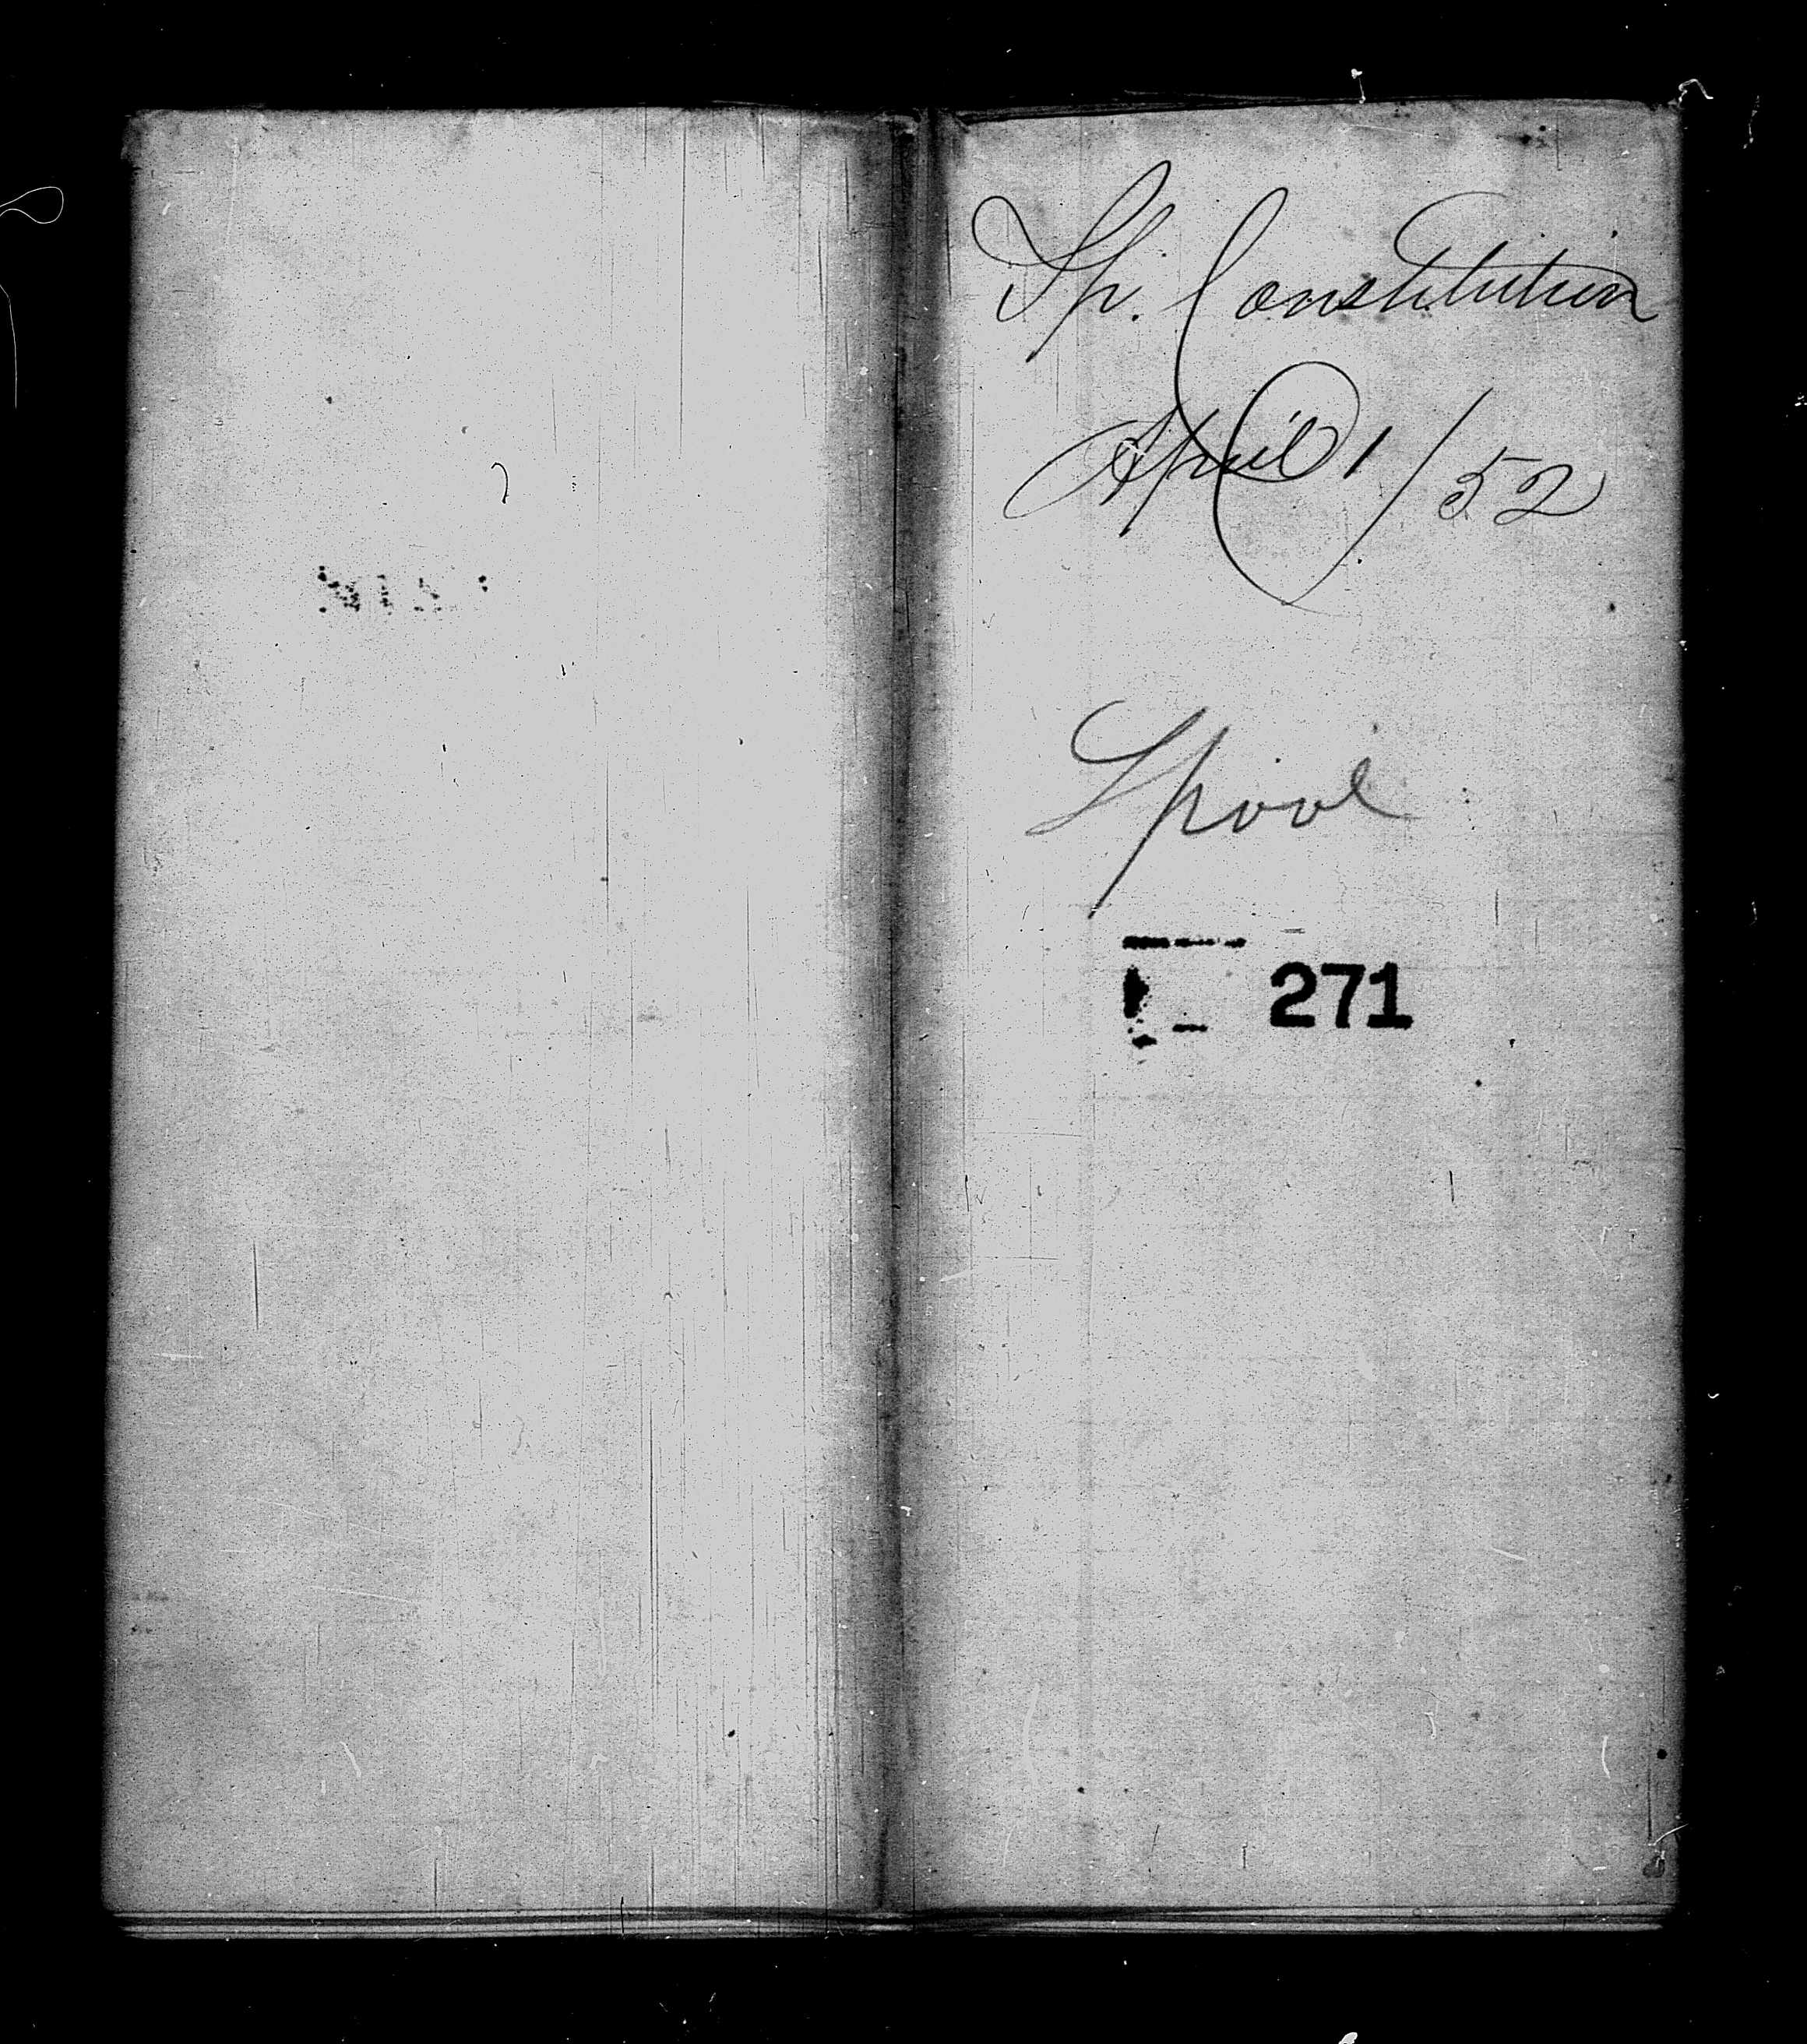 Sh. Constitution
April 1/52
Lpool
271